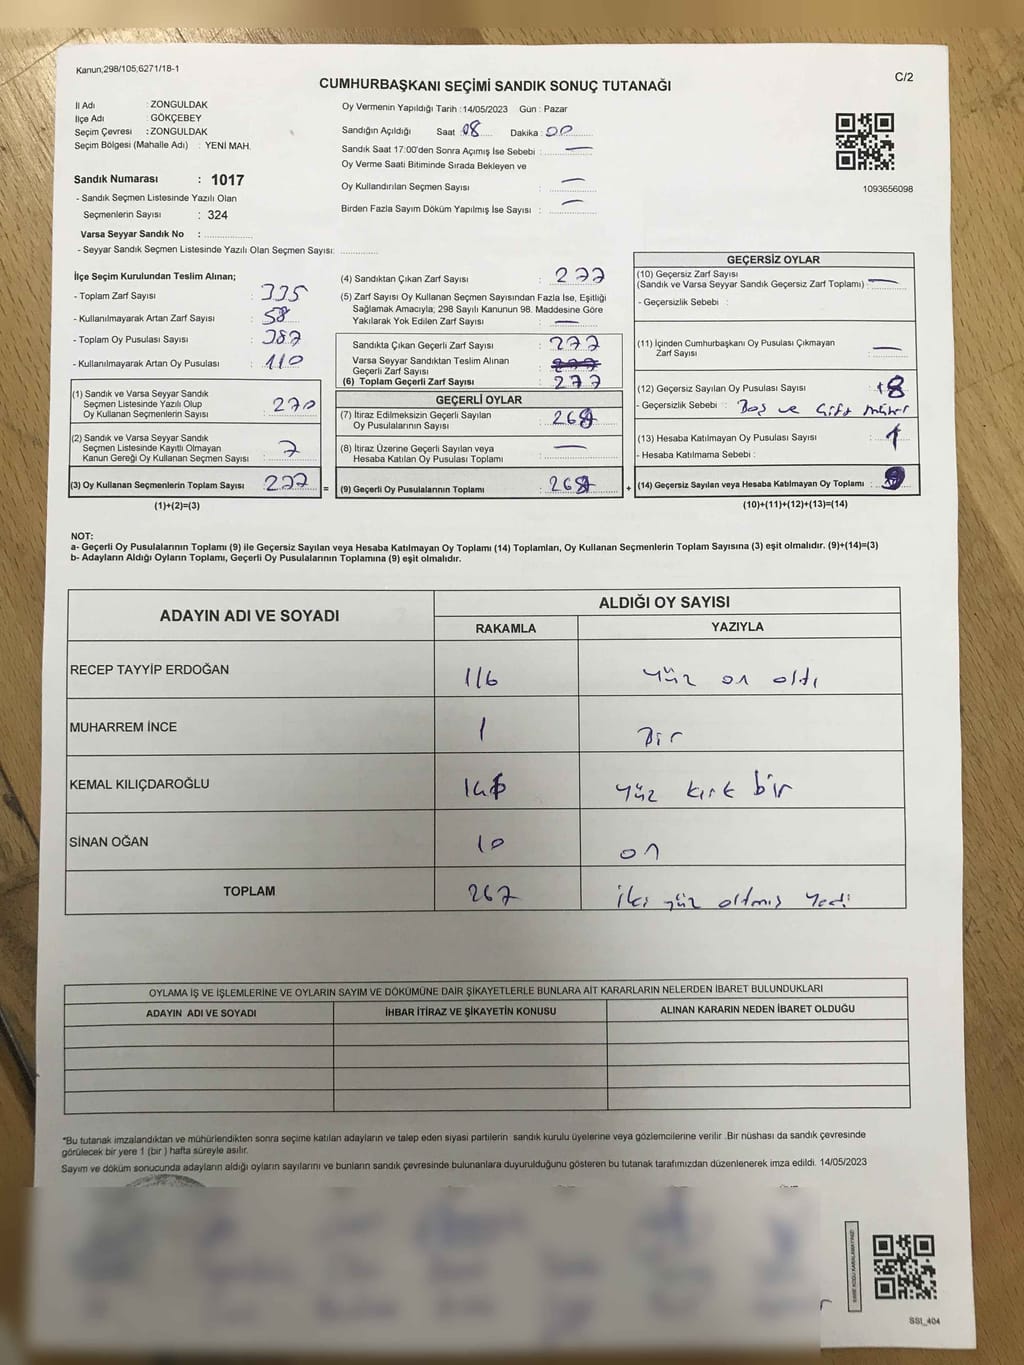 Kanun;298/105;6271/18-1
C/2
CUMHURBAŞKANI SEÇİMİ SANDIK SONUÇ TUTANAĞI
İl Adı : ZONGULDAK
İlçe Adı : GÖKÇEBEY
Seçim Çevresi : ZONGULDAK
Seçim Bölgesi (Mahalle Adı) : YENİ MAH.
Sandık Numarası : 1017
- Sandık Seçmen Listesinde Yazılı Olan
Seçmenlerin Sayısı : 324
Varsa Seyyar Sandık No :
- Seyyar Sandık Seçmen Listesinde Yazılı Olan Seçmen Sayısı:
Oy Vermenin Yapıldığı Tarih : 14/05/2023 Gün : Pazar
Sandığın Açıldığı Saat : 08 Dakika : 00
Sandık Saat 17:00'den Sonra Açımış İse Sebebi : —
Oy Verme Saati Bitiminde Sırada Bekleyen ve
Oy Kullandırılan Seçmen Sayısı : —
Birden Fazla Sayım Döküm Yapılmış İse Sayısı : —
1093656098
İlçe Seçim Kurulundan Teslim Alınan;
- Toplam Zarf Sayısı : 335
- Kullanılmayarak Artan Zarf Sayısı : 58
- Toplam Oy Pusulası Sayısı : 387
- Kullanılmayarak Artan Oy Pusulası : 110
(1) Sandık ve Varsa Seyyar Sandık
Seçmen Listesinde Yazılı Olup
Oy Kullanan Seçmenlerin Sayısı : 270
(2) Sandık ve Varsa Seyyar Sandık
Seçmen Listesinde Kayıtlı Olmayan
Kanun Gereği Oy Kullanan Seçmen Sayısı : 7
(3) Oy Kullanan Seçmenlerin Toplam Sayısı : 277 =
(1)+(2)=(3)
(4) Sandıktan Çıkan Zarf Sayısı : 277
(5) Zarf Sayısı Oy Kullanan Seçmen Sayısından Fazla İse, Eşitliği
Sağlamak Amacıyla; 298 Sayılı Kanunun 98. Maddesine Göre
Yakılarak Yok Edilen Zarf Sayısı : —
Sandıkta Çıkan Geçerli Zarf Sayısı : 277
Varsa Seyyar Sandıktan Teslim Alınan
Geçerli Zarf Sayısı :
(6) Toplam Geçerli Zarf Sayısı : 277
GEÇERLİ OYLAR
(7) İtiraz Edilmeksizin Geçerli Sayılan
Oy Pusulalarının Sayısı :
(8) İtiraz Üzerine Geçerli Sayılan veya
Hesaba Katılan Oy Pusulası Toplamı : —
(9) Geçerli Oy Pusulalarının Toplamı : +
GEÇERSİZ OYLAR
(10) Geçersiz Zarf Sayısı
(Sandık ve Varsa Seyyar Sandık Geçersiz Zarf Toplamı) : —
- Geçersizlik Sebebi :
(11) İçinden Cumhurbaşkanı Oy Pusulası Çıkmayan
Zarf Sayısı : —
(12) Geçersiz Sayılan Oy Pusulası Sayısı : 8
- Geçersizlik Sebebi : Boş ve çift mühür
(13) Hesaba Katılmayan Oy Pusulası Sayısı : 1
- Hesaba Katılmama Sebebi :
(14) Geçersiz Sayılan veya Hesaba Katılmayan Oy Toplamı :
(10)+(11)+(12)+(13)=(14)
NOT:
a- Geçerli Oy Pusulalarının Toplamı (9) ile Geçersiz Sayılan veya Hesaba Katılmayan Oy Toplamı (14) Toplamları, Oy Kullanan Seçmenlerin Toplam Sayısına (3) eşit olmalıdır. (9)+(14)=(3)
b- Adayların Aldığı Oyların Toplamı, Geçerli Oy Pusulalarının Toplamına (9) eşit olmalıdır.
ADAYIN ADI VE SOYADI ALDIĞI OY SAYISI
RAKAMLA YAZIYLA
RECEP TAYYİP ERDOĞAN 116 Yüz on altı
MUHARREM İNCE 1 Bir
KEMAL KILIÇDAROĞLU yüz kırk bir
SİNAN OĞAN 10 on
TOPLAM 267 iki yüz altmış yedi
OYLAMA İŞ VE İŞLEMLERİNE VE OYLARIN SAYIM VE DÖKÜMÜNE DAİR ŞİKAYETLERLE BUNLARA AİT KARARLARIN NELERDEN İBARET BULUNDUKLARI
ADAYIN ADI VE SOYADI İHBAR İTİRAZ VE ŞİKAYETİN KONUSU ALINAN KARARIN NEDEN İBARET OLDUĞU
*Bu tutanak imzalandıktan ve mühürlendikten sonra seçime katılan adayların ve talep eden siyasi partilerin sandık kurulu üyelerine veya gözlemcilerine verilir .Bir nüshası da sandık çevresinde
görülecek bir yere 1 (bir ) hafta süreyle asılır.
Sayım ve döküm sonucunda adayların aldığı oyların sayılarını ve bunların sandık çevresinde bulunanlara duyurulduğunu gösteren bu tutanak tarafımızdan düzenlenerek imza edildi. 14/05/2023
SSI_404